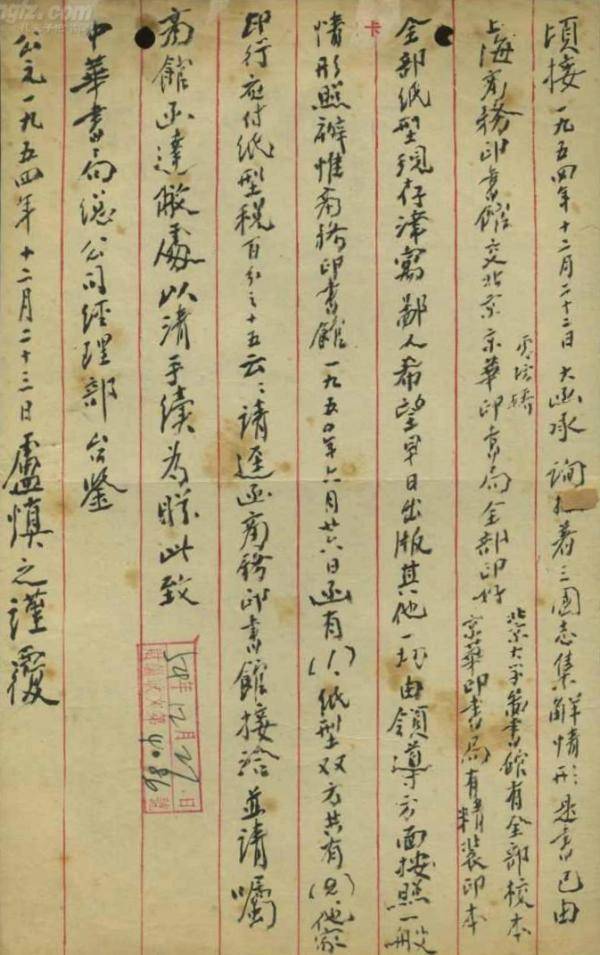 頃接一九五四年十二月二十二日大函承詢拙著三國志集解情形是書已由
上海商務印書館交北京京華印書局全部印好
虎坊橋
北京大学圖書館有全部校本
京華印書局有精裝印本
全部纸型現存津寓鄙人希望早日出版其他一切由領導方面按照一般
情形照辦惟商務印書館一九五〇年六月廿六日函有(1)、纸型双方共有(2)、他家
印行應付纸型税百分之十五云云請逕函商務印書館接洽並請囑
商館函達敝處以清手續為盼此致
中華書局總公司經理部 台鑒
公元一九五四年十二月二十三日盧慎之謹覆
卡
54年12月27日
4086號